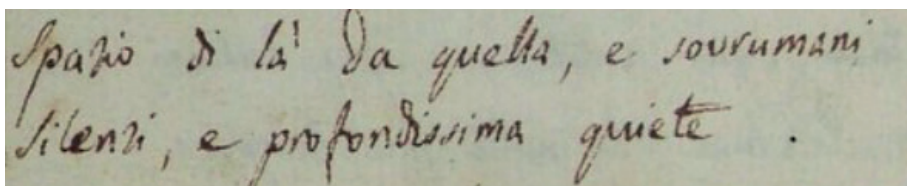 Spazio di là da quella, e sovrumani
Silenzi, e profondissima quiete.